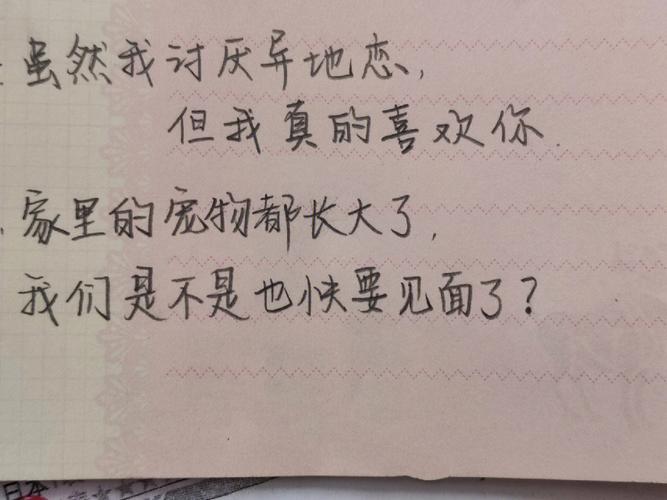 虽然我讨厌异地恋,
但我真的喜欢你.
家里的宠物都长大了,
我们是不是也快要见面了?
日本